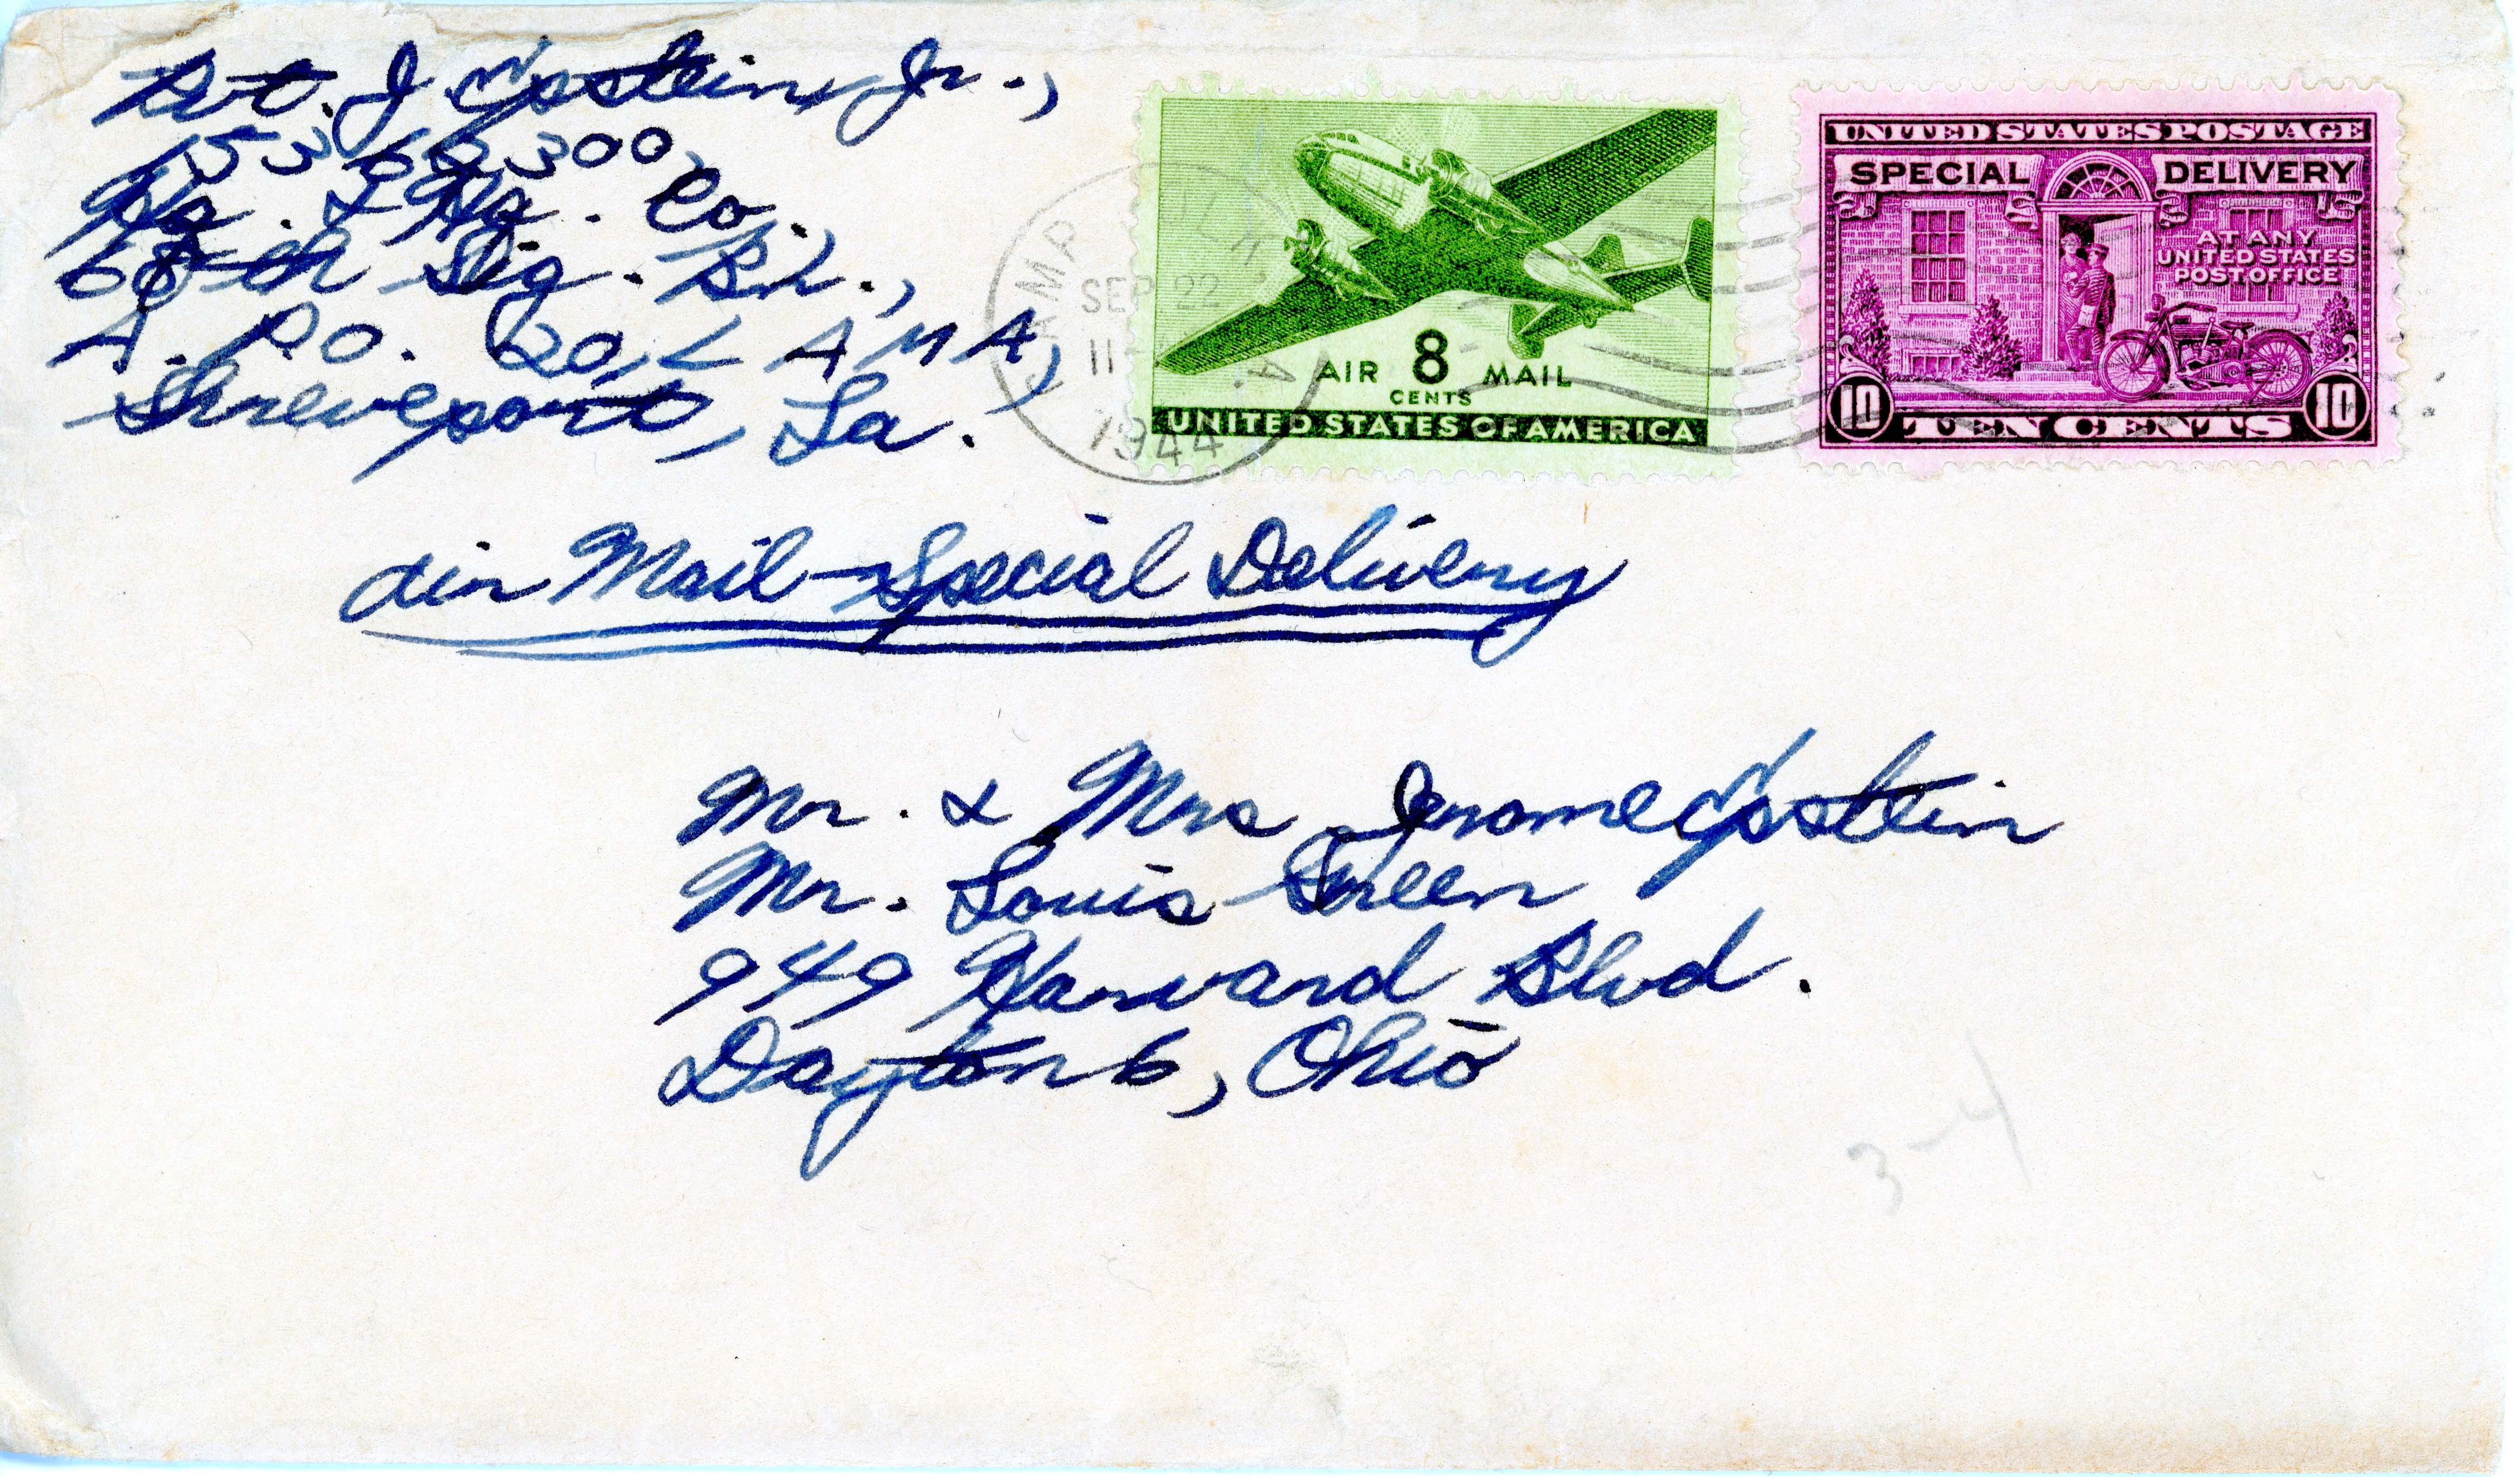 Pvt. J Epstein, Jr.,
15366300,
Hq. & Hq. Co.,
68th Sig. Bn.,
A. P.O. 20, L A M A,
Shreveport, La.
CAMP
SEP 22
11
1944
AIR 8 MAIL
CENTS
UNITED STATES OF AMERICA
UNITED STATES POSTAGE
SPECIAL DELIVERY
AT ANY
UNITED STATES
POST OFFICE
10 TEN CENTS 10
Air Mail - Special Delivery
Mr. & Mrs. Jerome Epstein
Mr. Louis Green
949 Harvard Blvd.
Dayton 6, Ohio
3-4